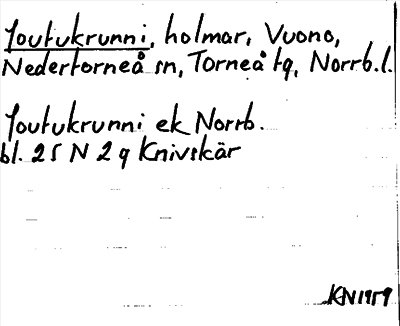 Joutukrunni, holmar, Vuono,
Nedertorneå sn, Torneå tg, Norrb.l.
Joutukrunni ek Norrb.
bl. 25 N 2 g Knivskär
KN1959